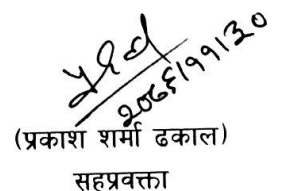 २०७६।११।३०
(प्रकाश शर्मा ढकाल)
सहप्रवक्ता